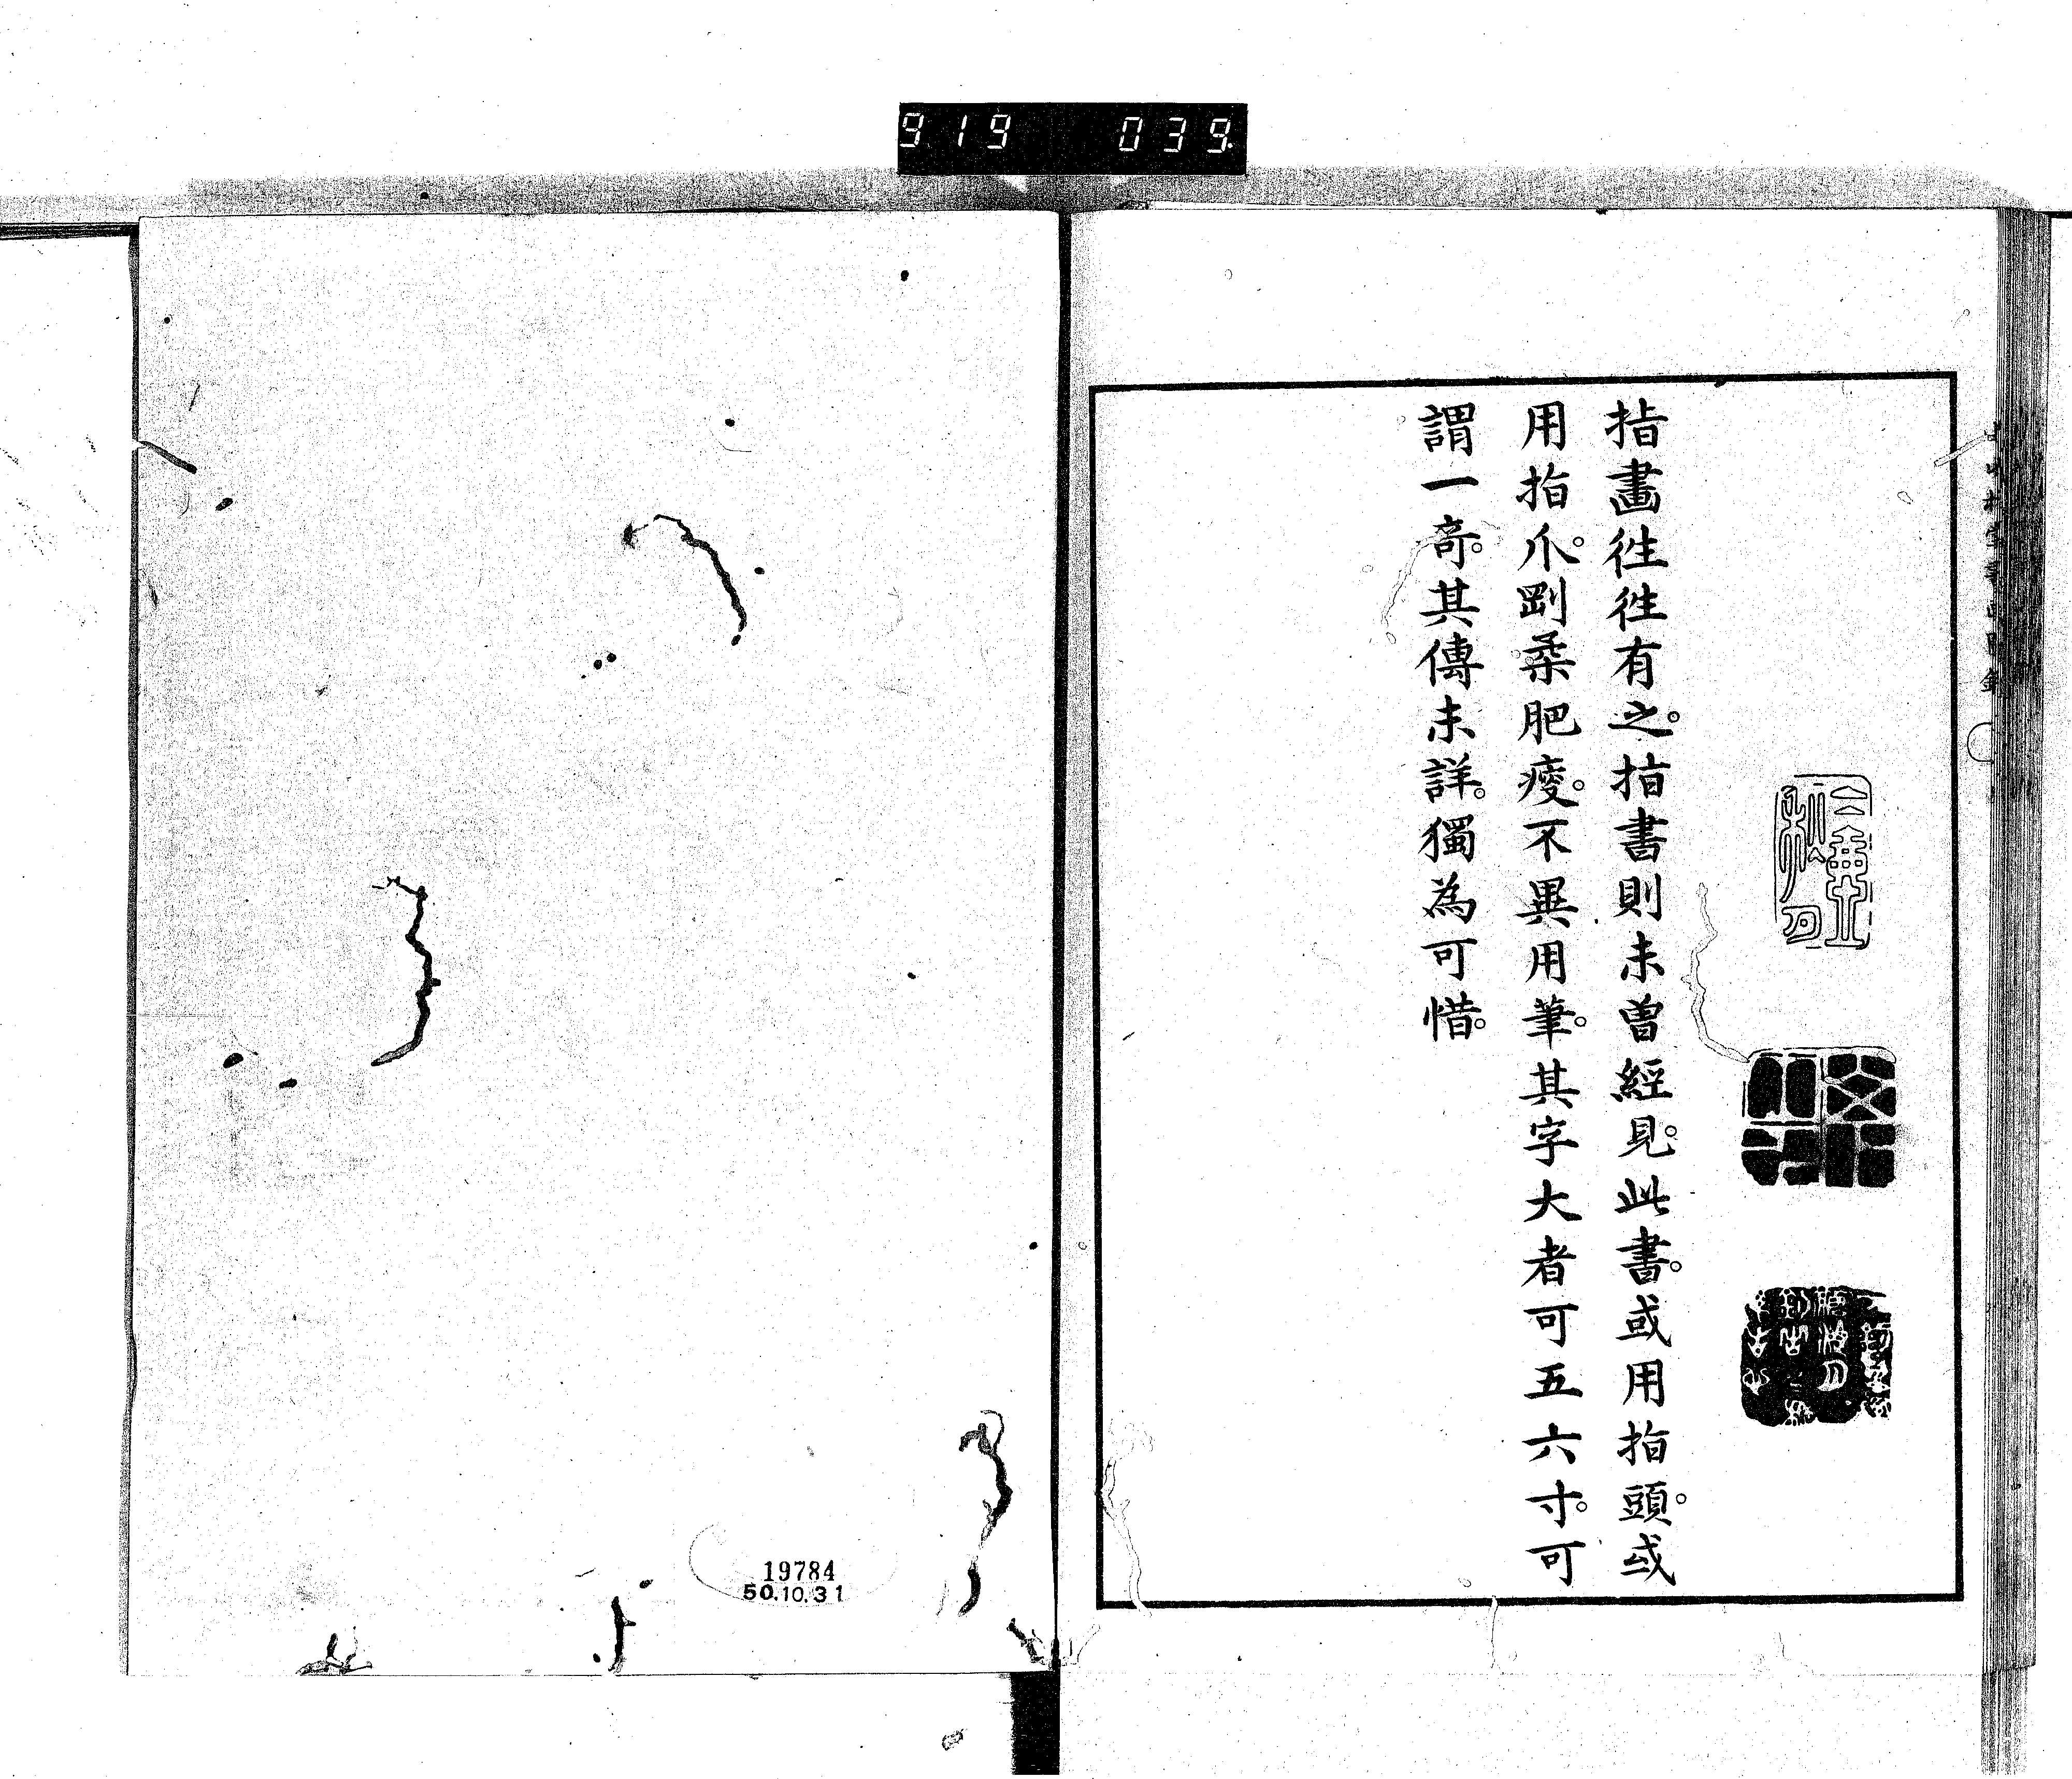 9 19 039
指畫徃徃有之。指書則未曾經見。此書。或用指頭。或
用指爪。剛柔肥瘦。不異用筆。其字大者可五六寸。可
謂一奇。其傳未詳。獨為可惜。
19784
50.10.31